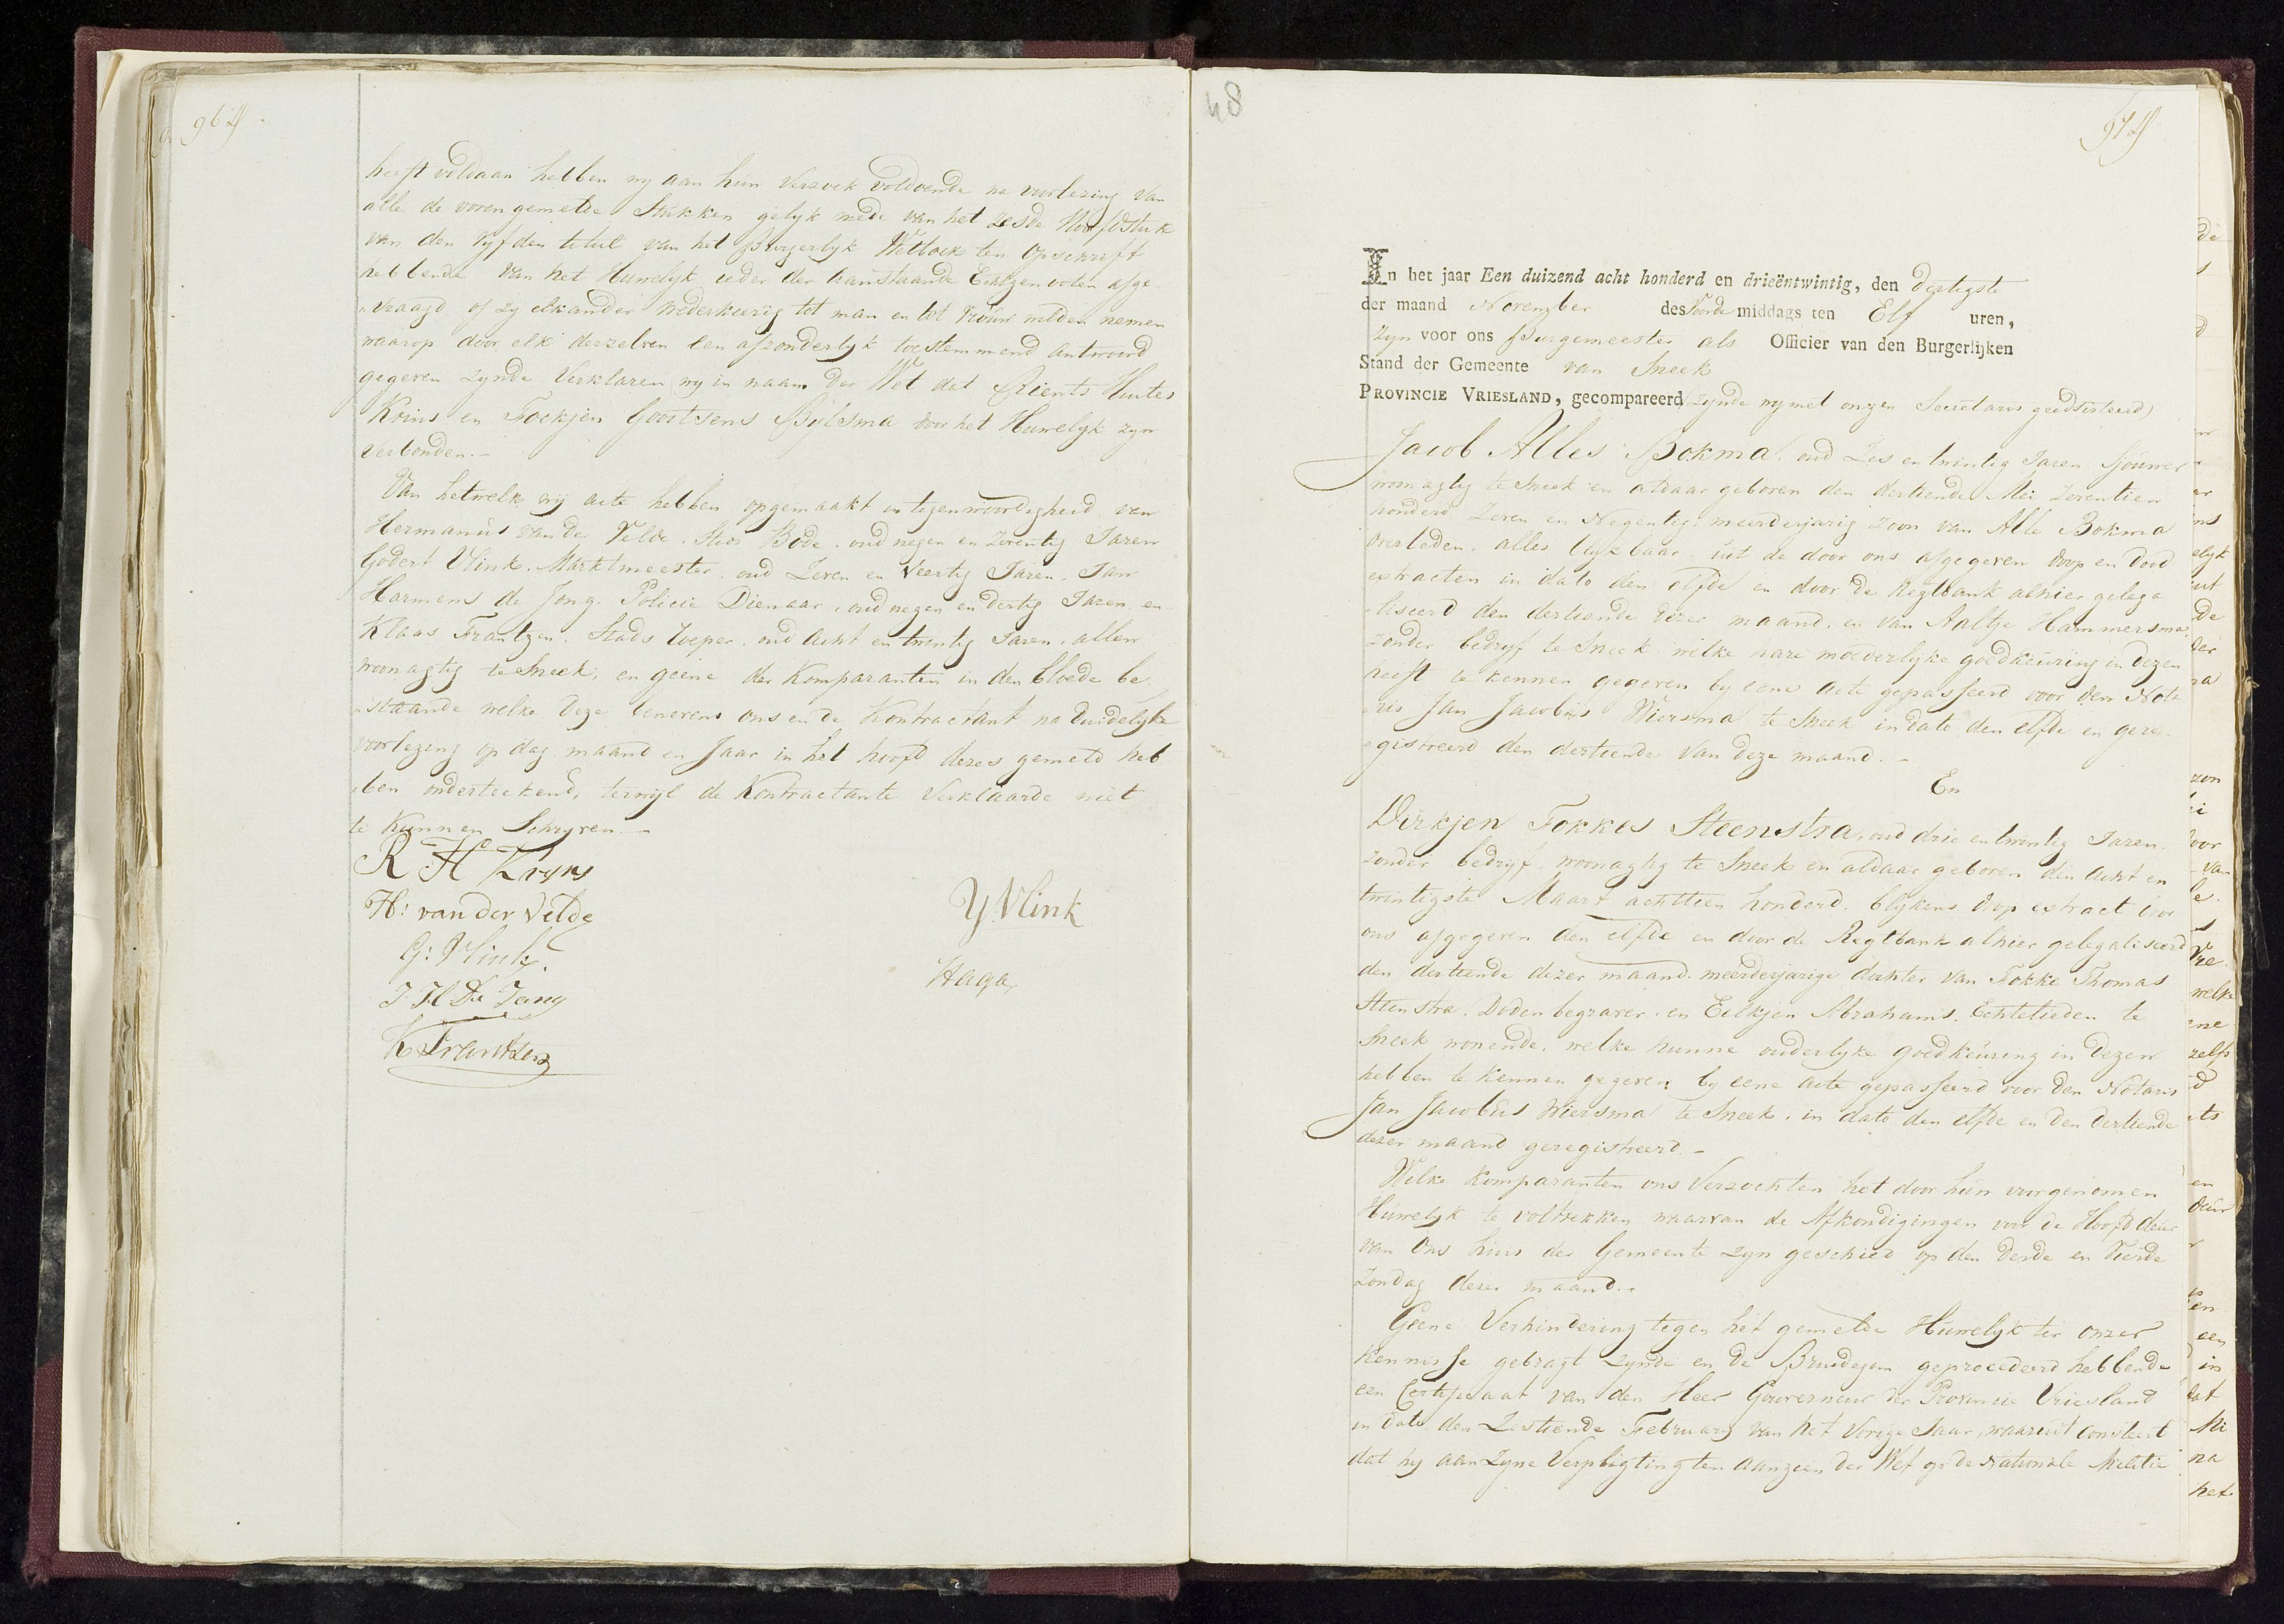 96
heeft voldaan hebben wy aan hun verzoek voldoende na voorlezing van
alle de vorengemelde Stukken gelyk mede van het zesde Hoofdstuk
van den vyfden titul van het Burgerlyk Wetboek ten Opschrift
hebbende van het Huwelyk ieder der aanstaande Echtgenoten afge
„vraagd of zy elkander wederkeerig tot man en tot vrouw wilden nemen
waarop door elk derzelven een afzonderlyk toestemmend antwoord
gegeven zynde Verklaren wy in naam der Wet dat Rients Huites
Kryns en Fockjen Gooitsens Bylsma door het Huwelyk zyn
verbonden.-
Van hetwelk wij acte hebben opgemaakt in tegenwoordigheid van
Hermanus van der Velde. Stads Bode. oud negen en zeventig Jaren
Godert Vlink. Marktmeester. oud Zeven en Veertig Jaren. Jan
Harmens de Jong. Policie Dienaar. oud negen en dertig Jaren. en
Klaas Frantzen. Stads roeper. oud acht en twintig Jaren. allen
woonagtig te Sneek, en geene der Komparanten in den bloede be
„staande welke deze benevens ons en de Kontractant na duidelyke
voorlezing op dag maand en Jaar in het hoofd dezes gemeld heb
„ben onderteekend, terwyl de Kontractante Verklaarde niet
te Kunnen Schryven.—
R H Kryns
H: van der Velde
Y. Vlink
G: Vlink.
Haga
J H De Jong
K Frantzen
48
97
In het jaar Een duizend acht honderd en drieëntwintig, den dertigste
der maand November des Voorde middags ten Elf uren,
Zyn voor ons Burgemeester als Officier van den Burgerlijken
Stand der Gemeente van Sneek
PROVINCIE VRIESLAND, gecompareerd zynde wy met onzen Secretaris geadsisteerd)
Jacob Alles Bokma. oud Zes en twintig Jaren. Sjouwer
woonagtig te Sneek en aldaar geboren den dertiende Mei Zeventien
honderd Zeven en Negentig. meerderjarig zoon van Alle Bokma
overleden. alles blykbaar uit de door ons afgegeven doop en dood
extracten in dato den elfde en door de Regtbank alhier gelega
„liseerd den dertiende dezer maand, en van Aaltje Hammersma,
zonder bedryf te Sneek. welke hare moederlyke goedkeuring in dezen
heeft te kennen gegeven by eene acte gepasseerd voor den Nota
„ris Jan Jacobus Wiersma te Sneek in dato den elfde en gere
„gistreerd den dertiende van deze maand.-
En
Dirkjen Fokkes Steenstra, oud drie en twintig Jaren.
zonder bedryf. woonagtig te Sneek en aldaar geboren den acht en
twintigste Maart achttien honderd. blykens doop extract door
ons afgegeven den elfde en door de Regtbank alhier gelegaliseerd
den dertiende dezer maand. meerderjarige dochter van Fokke Thomas
Steenstra. Dodenbegraver. en Eelkjen Abrahams. Echtelieden te
Sneek wonende. welke hunne ouderlyke goedkeuring in dezen
hebben te kennen gegeven by eene acte gepasseerd voor den Notaris
Jan Jacobus Wiersma te Sneek. in dato den elfde en den dertiende
dezer maand geregistreerd.-
Welke Komparanten ons Verzochten het door hun voorgenomen
Huwelyk te voltrekken waarvan de Afkondigingen voor de Hoofddeur
van Ons huis der Gemeente zyn geschied op den derde en vierde
Zondag dezer maand.-
Geene Verhindering tegen het gemelde Huwelyk ter onzer
kennisse gebragt zynde en de Bruidegom geproduceerd hebbende
een Certificaat van den Heer Gouverneur der Provincie Vriesland
in dato den Zestiende February van het vorige Jaar, waaruit consteert
dat hy aan Zyne Verpligting ten aanzien der Wet op de Nationale Militie